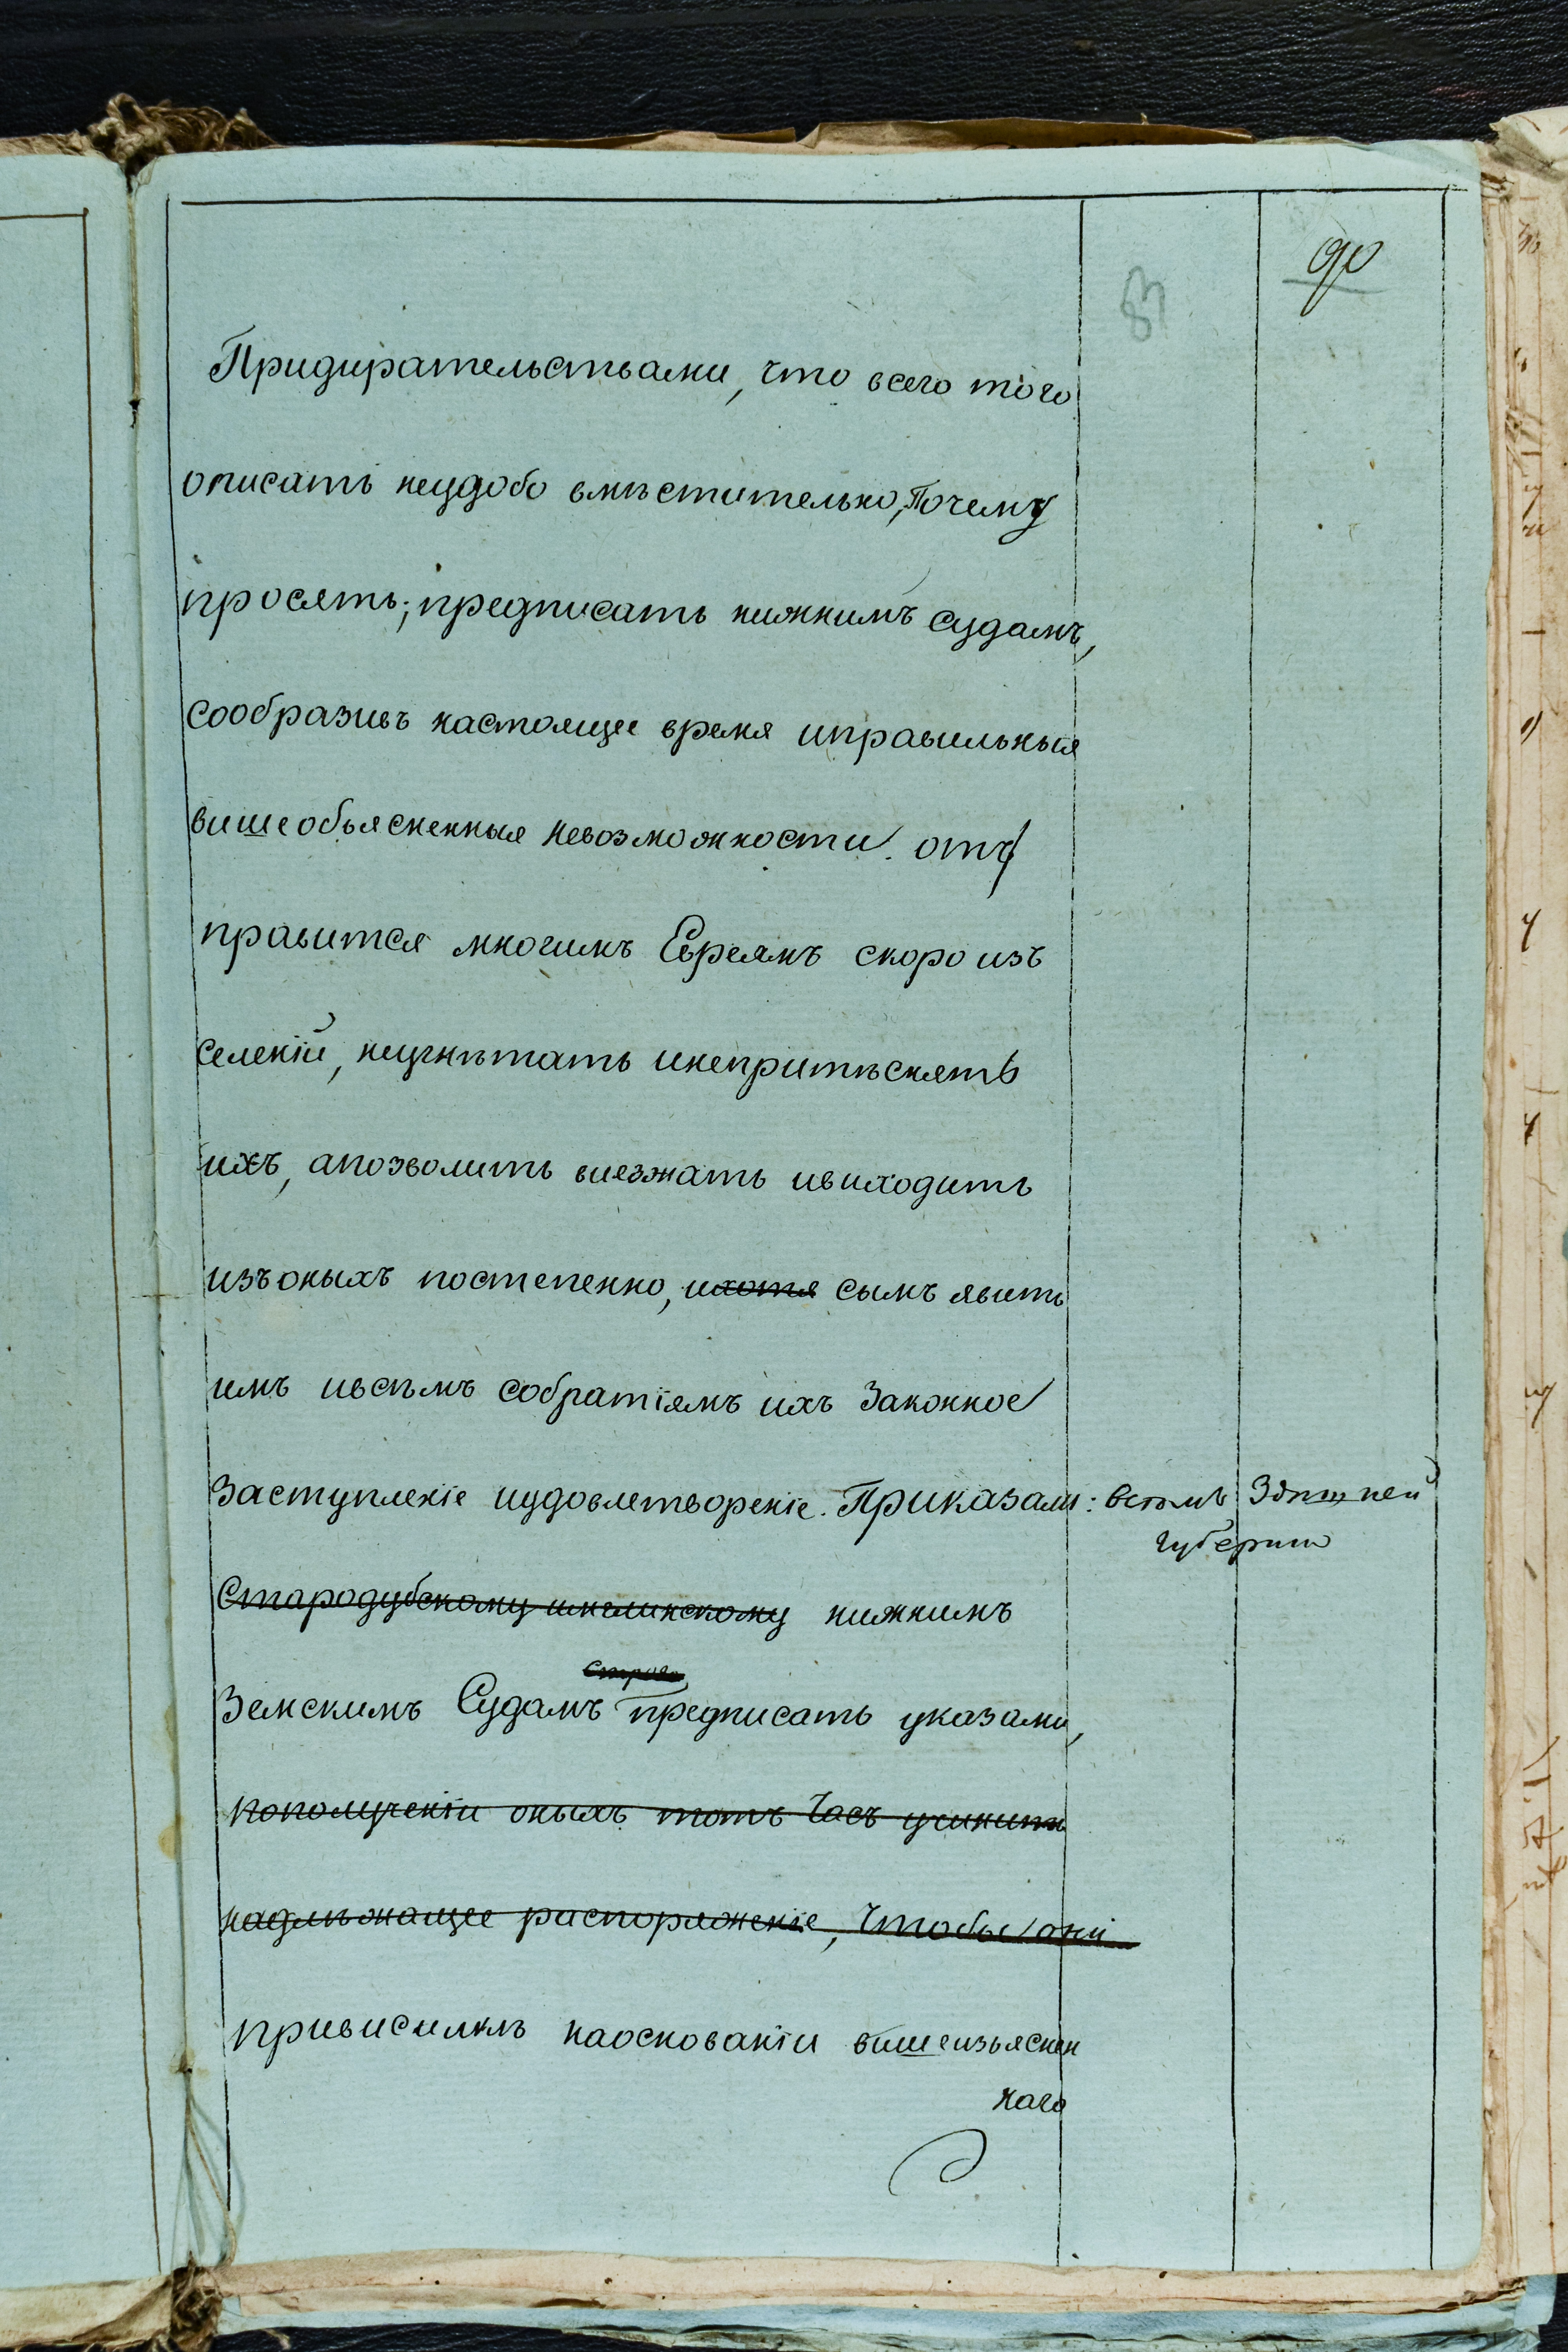 90
83
Придирательствами, что всего того
описать неудобо вмѣстительно, Почему
просятъ; предписать нижнимъ судамъ,
сообразивъ настоящее время иправильныя
вишеобьясненныя невозможности отъ
правится многимъ Евреямъ скоро изъ
селеній, неугнѣтать инепритѣснять
ихъ, апозволить виезжать ивиходить
изъоныхъ постепенно, ихотя сымъ явить
имъ ивсѣмъ собратіямъ ихъ Законное
Заступленіе иудовлетвореніе. Приказали: всѣмъ Здѣшней
губерніи
Стародубскому имглинскому нижнимъ
строго
Земскимъ Судамъ предписать указами,
пополученіи оныхъ тотъ Часъ учинить
надлѣжащее распоряженіе, Чтобы они
привисилкѣ наоснованіи вишеизьяснен
наго